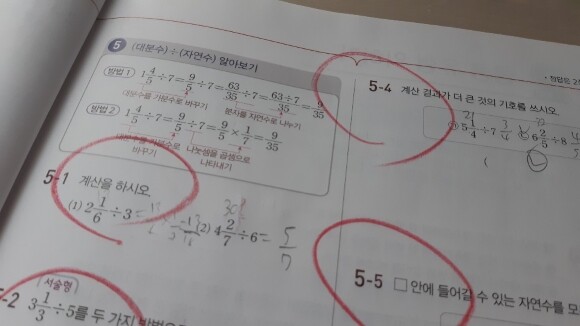 5 (대분수)÷(자연수) 알아보기
방법 1 1 4/5 ÷ 7 = 9/5 ÷ 7 = 63/35 ÷ 7 = 63÷7/35 = 9/35
대분수를 가분수로 바꾸기 분자를 자연수로 나누기
방법 2 1 4/5 ÷ 7 = 9/5 ÷ 7 = 9/5 × 1/7 = 9/35
대분수를 가분수로 바꾸기 나눗셈을 곱셈으로 나타내기
5-1 계산을 하시오.
(1) 2 1/6 ÷ 3 =
(2) 4 2/7 ÷ 6 = 5/7
서술형
5-2 3 1/3 ÷ 5를 두 가지 방법으
정답은
5-4 계산 결과가 더 큰 것의 기호를 쓰시오.
5 1/4 ÷ 7 3/4 6 2/5 ÷ 8
5-5 □ 안에 들어갈 수 있는 자연수를 모